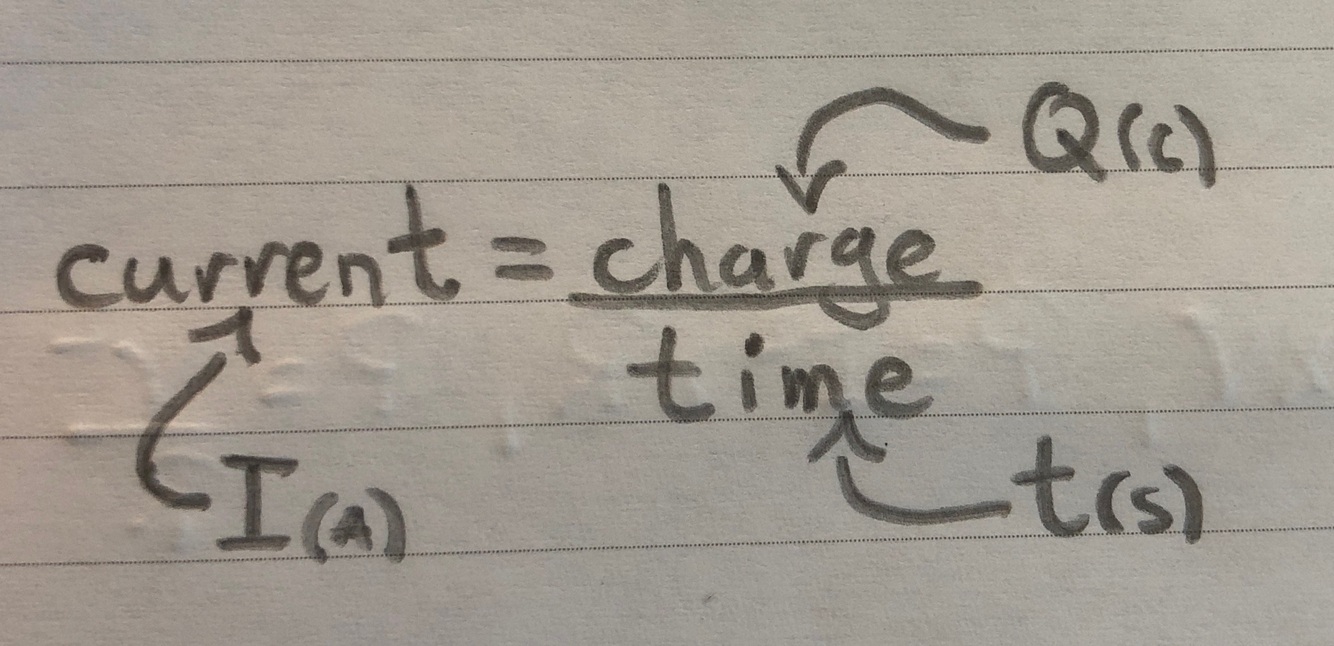 Q(c)
current = charge
time
I(A)
t(s)